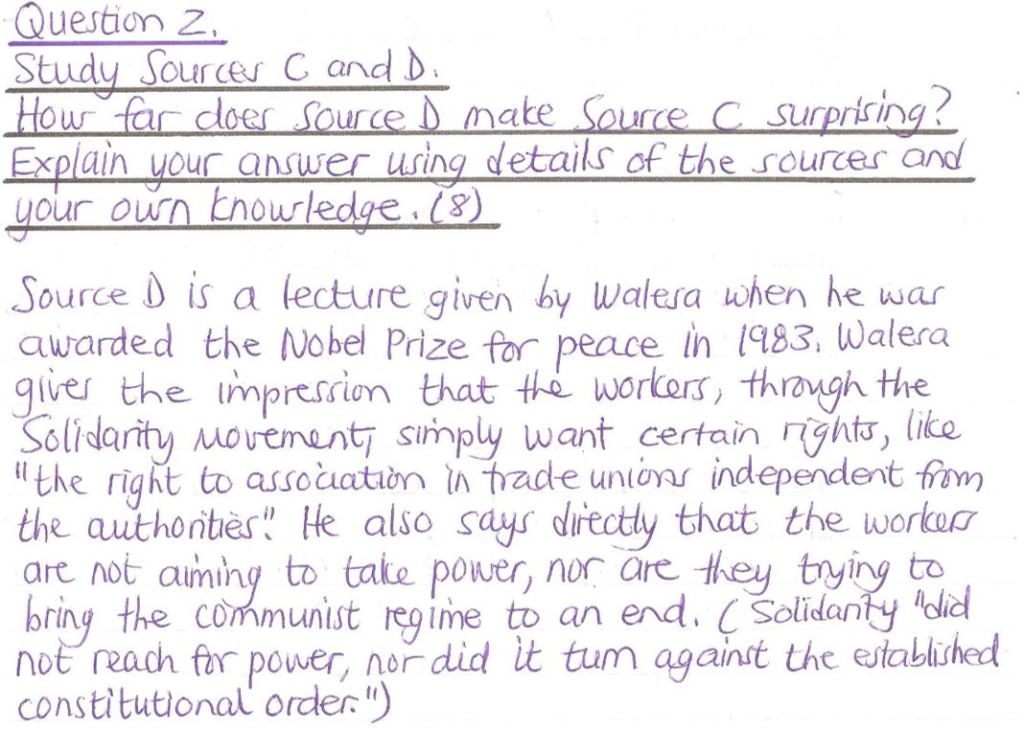 Question 2.
Study Sources C and D.
How far does Source D make Source C surprising?
Explain your answer using details of the sources and
your own knowledge. (8)
Source D is a lecture given by Walesa when he was
awarded the Nobel Prize for peace in 1983. Walesa
gives the impression that the workers, through the
Solidarity Movement, simply want certain rights, like
"the right to association in trade unions independent from
the authorities". He also says directly that the workers
are not aiming to take power, nor are they trying to
bring the communist regime to an end. (Solidarity "did
not reach for power, nor did it turn against the established
constitutional order.")